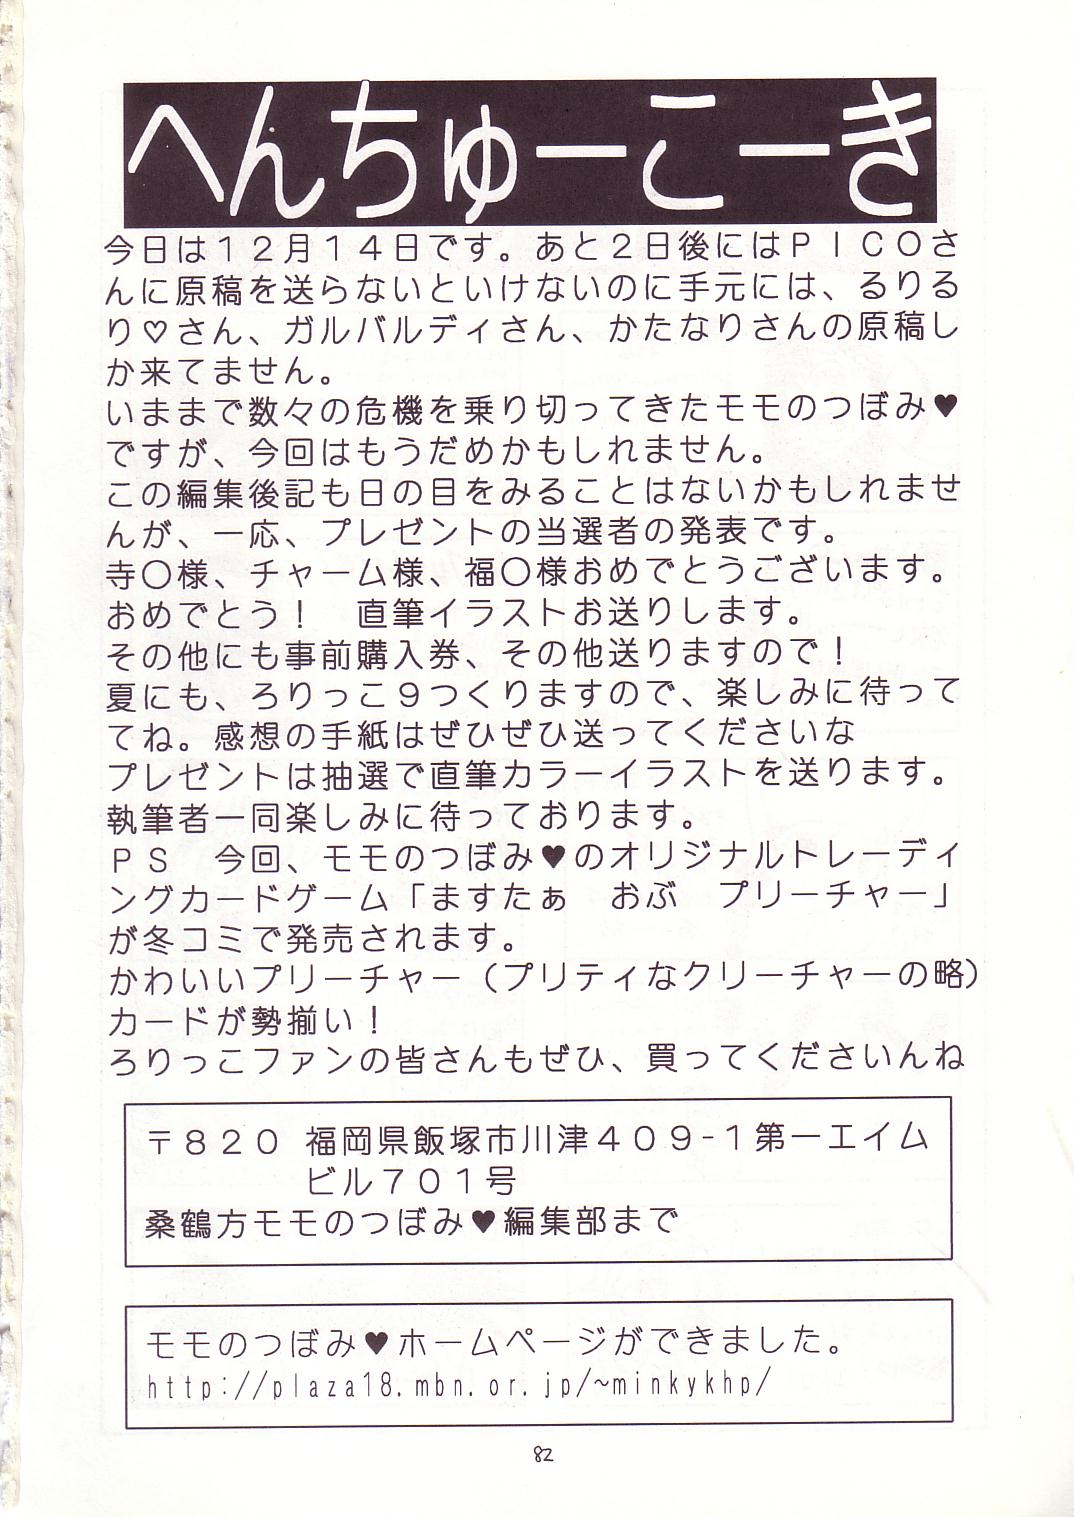 へんちゅーこーき
今日は１２月１４日です。あと２日後にはＰＩＣＯさ
んに原稿を送らないといけないのに手元には、るりる
り♡さん、ガルバルディさん、かたなりさんの原稿し
か来てません。
いままで数々の危機を乗り切ってきたモモのつぼみ♥
ですが、今回はもうだめかもしれません。
この編集後記も日の目をみることはないかもしれませ
んが、一応、プレゼントの当選者の発表です。
寺〇様、チャーム様、福〇様おめでとうございます。
おめでとう！　直筆イラストお送りします。
その他にも事前購入券、その他送りますので！
夏にも、ろりっこ９つくりますので、楽しみに待って
てね。感想の手紙はぜひぜひ送ってくださいな
プレゼントは抽選で直筆カラーイラストを送ります。
執筆者一同楽しみに待っております。
ＰＳ　今回、モモのつぼみ♥のオリジナルトレーディ
ングカードゲーム「ますたぁ　おぶ　プリーチャー」
が冬コミで発売されます。
かわいいプリーチャー（プリティなクリーチャーの略）
カードが勢揃い！
ろりっこファンの皆さんもぜひ、買ってくださいんね
〒８２０ 福岡県飯塚市川津４０９-１第一エイム
ビル７０１号
桑鶴方モモのつぼみ♥編集部まで
モモのつぼみ♥ホームページができました。
http://plaza18.mbn.or.jp/~minkykhp/
82